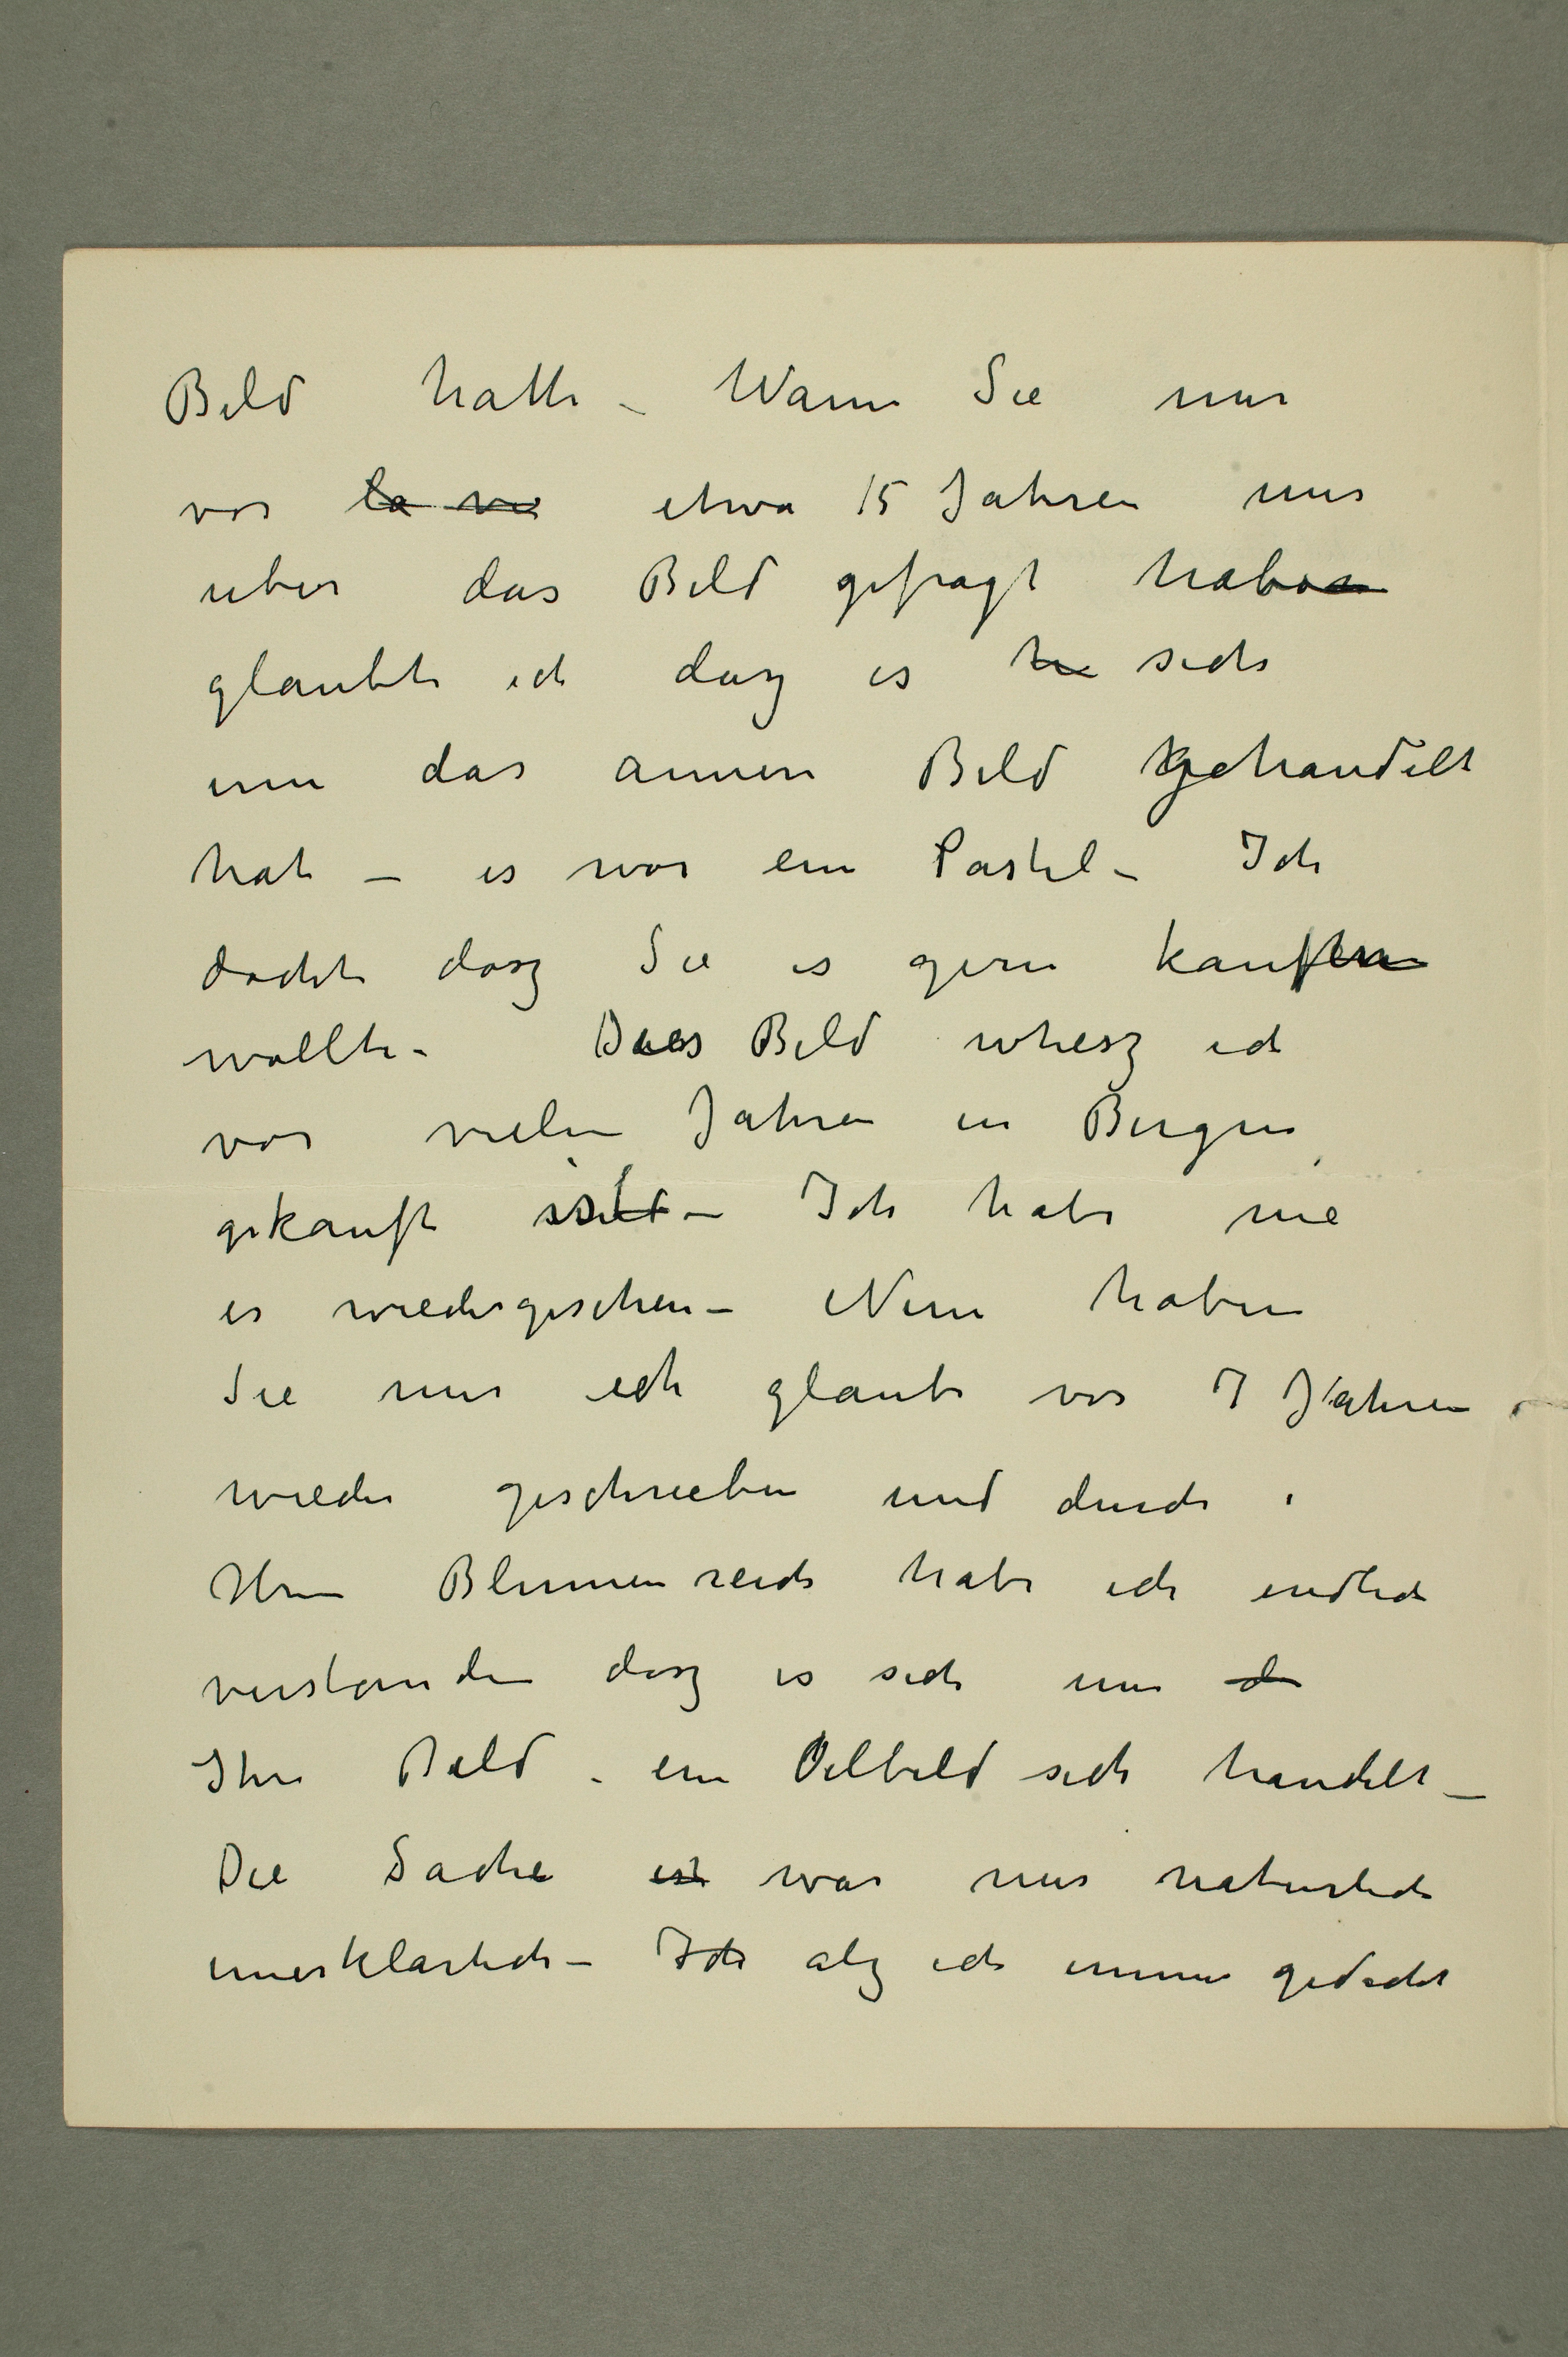 Bild hatte – Wann Sie mir
vor la vi etwa 15 Jahren mir
uber das Bild gefragt haben
glaubte ich dasz es h sich
um das annere Bild gehandelt
hat – es war ein Pastel – Ich
dachte dasz Sie es gern kaufen
wollte – Dies Bild whesz ich
vor vielen Jahren in Bergen
gekauft – Ich habe nie
es wiedergesehen – Nun haben
Sie mir ich glaube vor 7 Jahren
wieder geschrieben und durch
Hrn Blumenreich habe ich endlich
verstanden dasz es sich um d
Ihre Bild – ein Oelbild sich handelt –
Die Sache ist war mir naturlich
unerklarlich – Ich alz ich immer gedacht